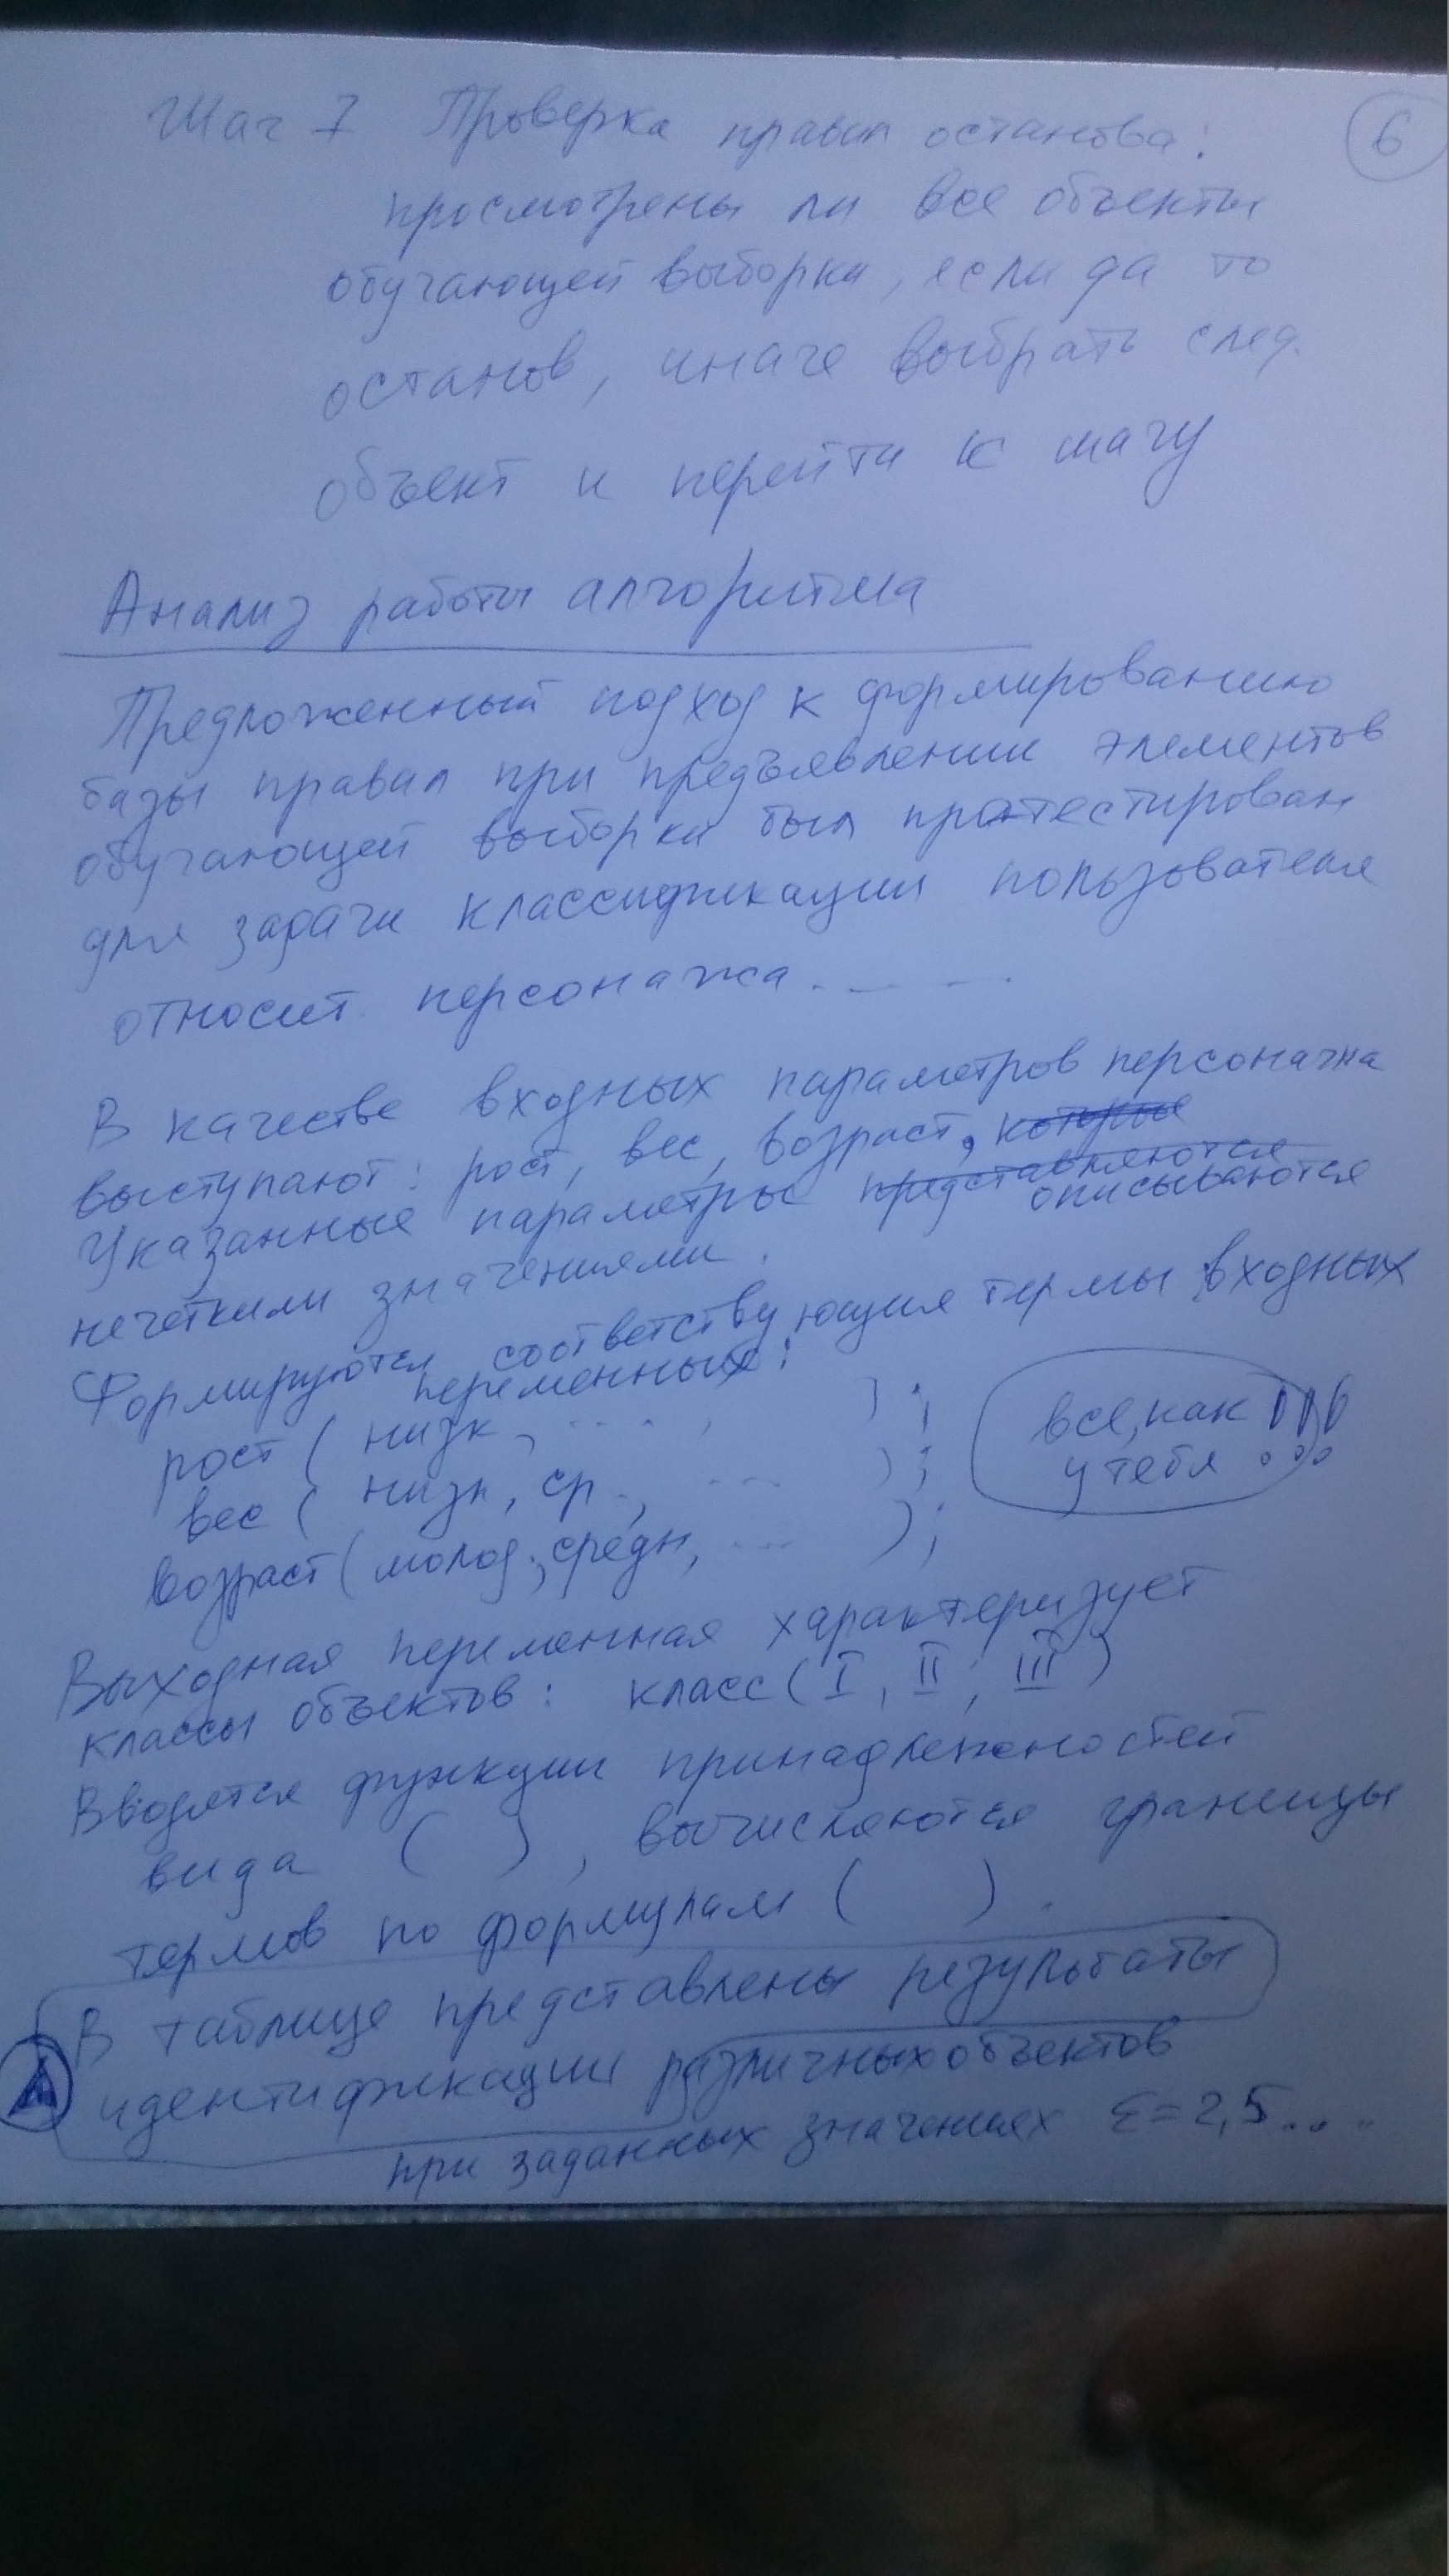 6
Шаг 7 Проверка правил останова:
просмотрены ли все объекты
обучающей выборки, если да то
останов, иначе выбрать след.
объект и перейти к шагу
Анализ работы алгоритма
Предложенный подход к формированию
базы правил при предъявлении элементов
обучающей выборки был протестирован
для задачи классификации пользователя
относит. персонажа. – – – .
В качестве входных параметров персонажа
выступают: рост, вес, возраст, которые
Указанные параметры представляются
описываются
нечеткими значениями.
Формируются соответствующие термы входных
переменных:
рост ( низк, .... , );
вес ( низк, ср., ... );
возраст (молод., средн, ... );
все, как
у тебя
Выходная переменная характеризует
классы объектов: класс (I, II, III)
Вводятся функции принадлежностей
вида ( ), вычисляются границы
термов по формулам ( ).
В таблице представлены результаты
идентификации различных объектов
при заданных значениях ε = 2,5....